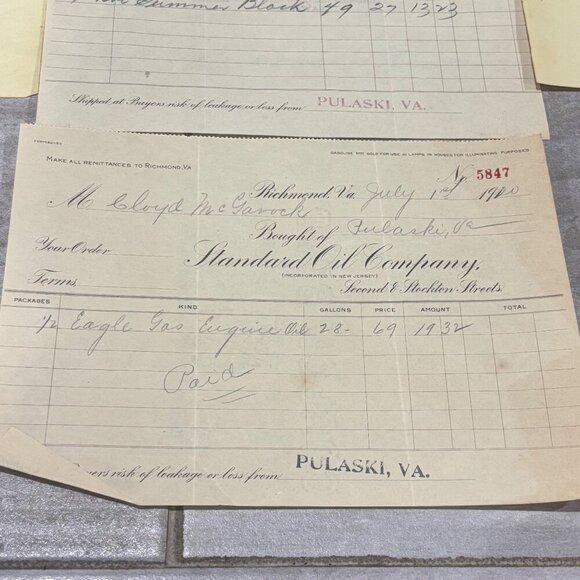 Summer Black 49 27 13,23
Shipped at Buyers risk of leakage or loss from PULASKI, VA.
MAKE ALL REMITTANCES TO RICHMOND, VA
GASOLINE NOT SOLD FOR USE IN LAMPS IN HOUSES FOR ILLUMINATING PURPOSES.
No. 5847
Richmond, Va. July 1st 1920
M Cloyd McGavock
Bought of Pulaski, Va
Your Order
Standard Oil Company,
(INCORPORATED IN NEW JERSEY)
Terms
Second & Stockton Streets.
PACKAGES KIND GALLONS PRICE AMOUNT TOTAL
1/2 Eagle Gas Engine Oil 28- 69 19 32
Paid
Buyers risk of leakage or loss from PULASKI, VA.